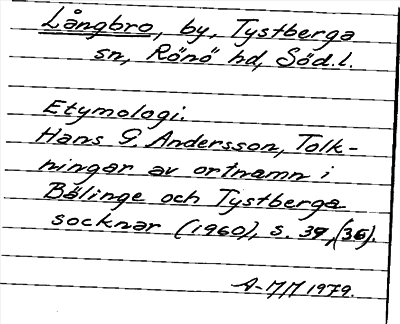 Långbro, by, Tystberga
sn, Rönö hd, Söd.l.
Etymologi.
Hans G. Andersson, Tolk-
ningar av ortnamn i
Bälinge och Tystberga
socknar (1960), s. 39, (36).
1979.